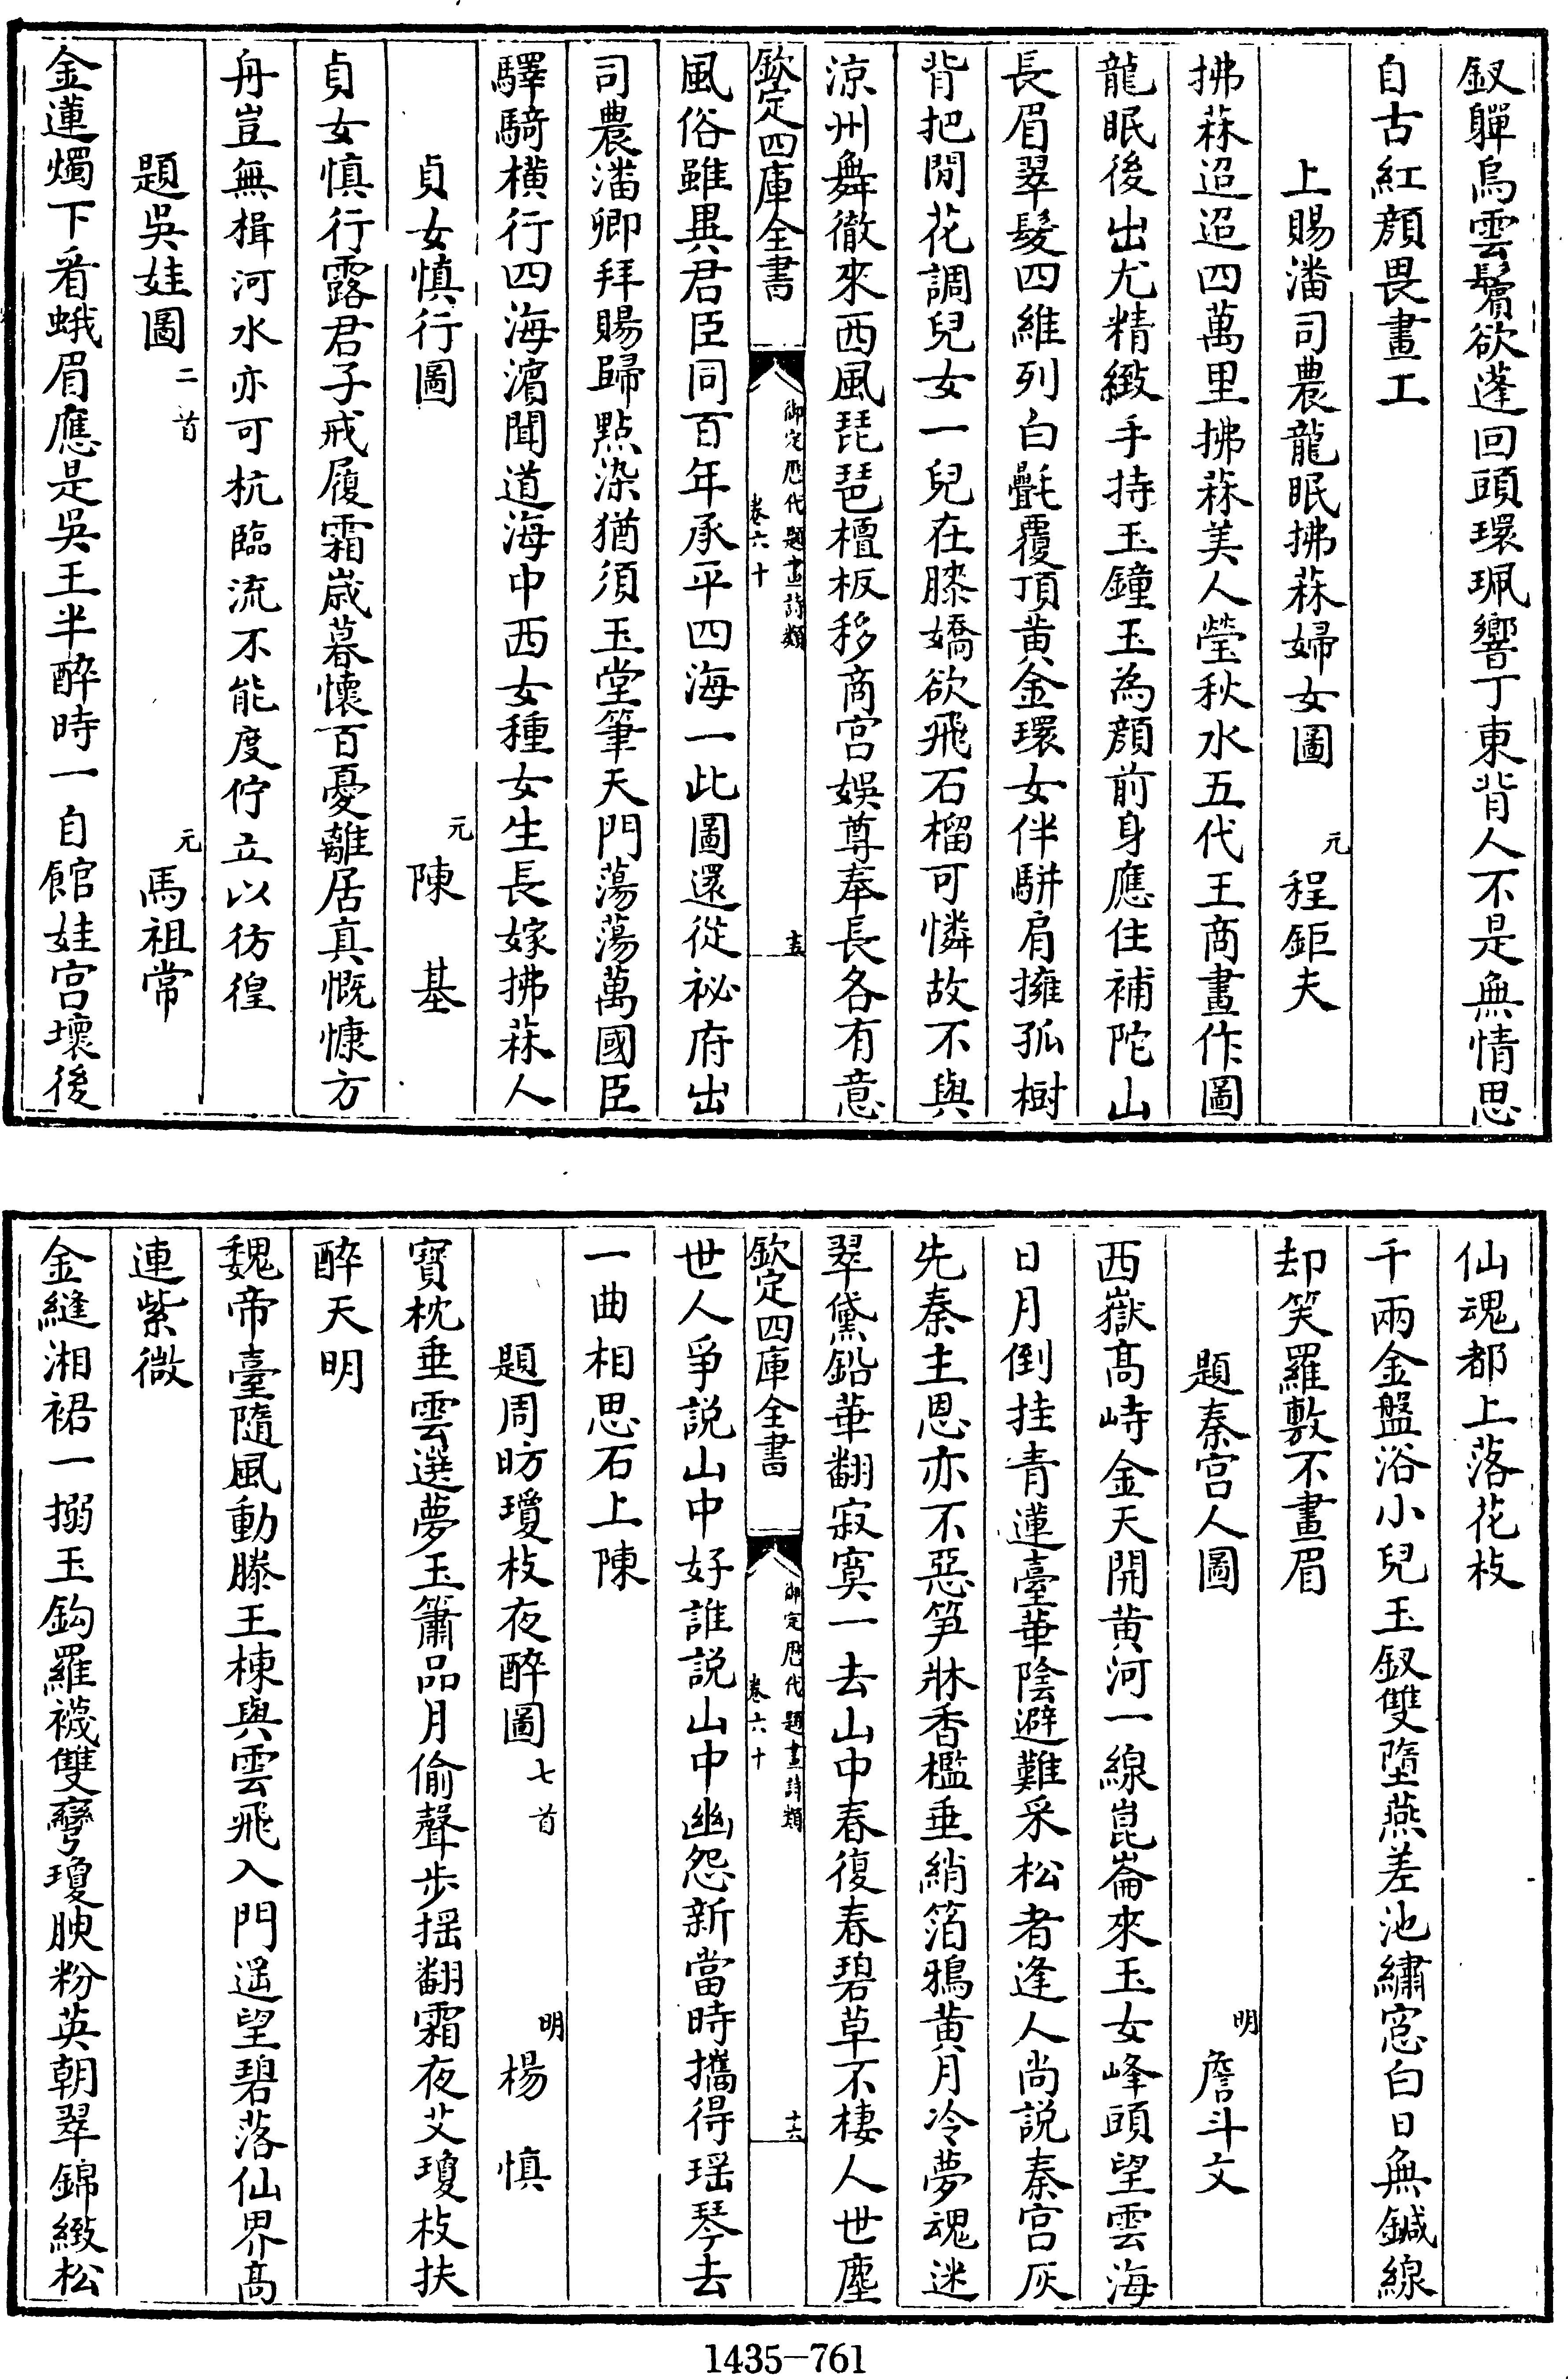 釵嚲烏雲鬢欲蓬回頭環珮響丁東背人不是無情思
自古紅顔畏畫工
上賜潘司農龍眠拂菻婦女圖 元 程鉅夫
拂菻迢迢四萬里拂菻美人瑩秋水五代王商畫作圖
龍眠後出尤精緻手持玉鐘玉為顔前身應住補陀山
長眉翠髮四維列白㲲覆頂黄金環女伴駢肩擁孤樹
背把閒花調兒女一兒在膝嬌欲飛石榴可憐故不與
涼州舞徹來西風琵琶檀板移商宫娱尊奉長各有意
欽定四庫全書 御定歴代題畫詩類 卷六十 十五
風俗雖異君臣同百年承平四海一此圖還從祕府出
司農潘卿拜賜歸點染猶須玉堂筆天門蕩蕩萬國臣
驛騎横行四海濵聞道海中西女種女生長嫁拂菻人
貞女慎行圖 元 陳基
貞女慎行露君子戒履霜歳暮懷百憂離居真慨慷方
舟豈無楫河水亦可杭臨流不能度佇立以彷徨
題吳娃圖 二首 元 馬祖常
金蓮燭下看蛾眉應是吳王半醉時一自館娃宫壞後
仙魂都上落花枝
千兩金盤浴小兒玉釵雙墮燕差池繡窓白日無鍼線
却笑羅敷不畫眉
題秦宫人圖 明 詹斗文
西嶽髙峙金天開黄河一線崑崙來玉女峰頭望雲海
日月倒挂青蓮臺華陰避難采松者逢人尚説秦宫灰
先秦主恩亦不惡笋牀香檻垂綃箔鴉黄月冷夢魂迷
翠黛鉛華翻寂寞一去山中春復春碧草不棲人世塵
欽定四庫全書 御定歴代題畫詩類 卷六十 十六
世人爭説山中好誰説山中幽怨新當時攜得瑶琴去
一曲相思石上陳
題周昉瓊枝夜醉圖 七首 明 楊慎
寳枕垂雲選夢玉簫品月偷聲步揺翻霜夜艾瓊枝扶
醉天明
魏帝臺隨風動滕王棟與雲飛入門遥望碧落仙界髙
連紫微
金縫湘裙一搦玉鈎羅襪雙彎瓊腴粉英朝翠錦緻松
1435—761